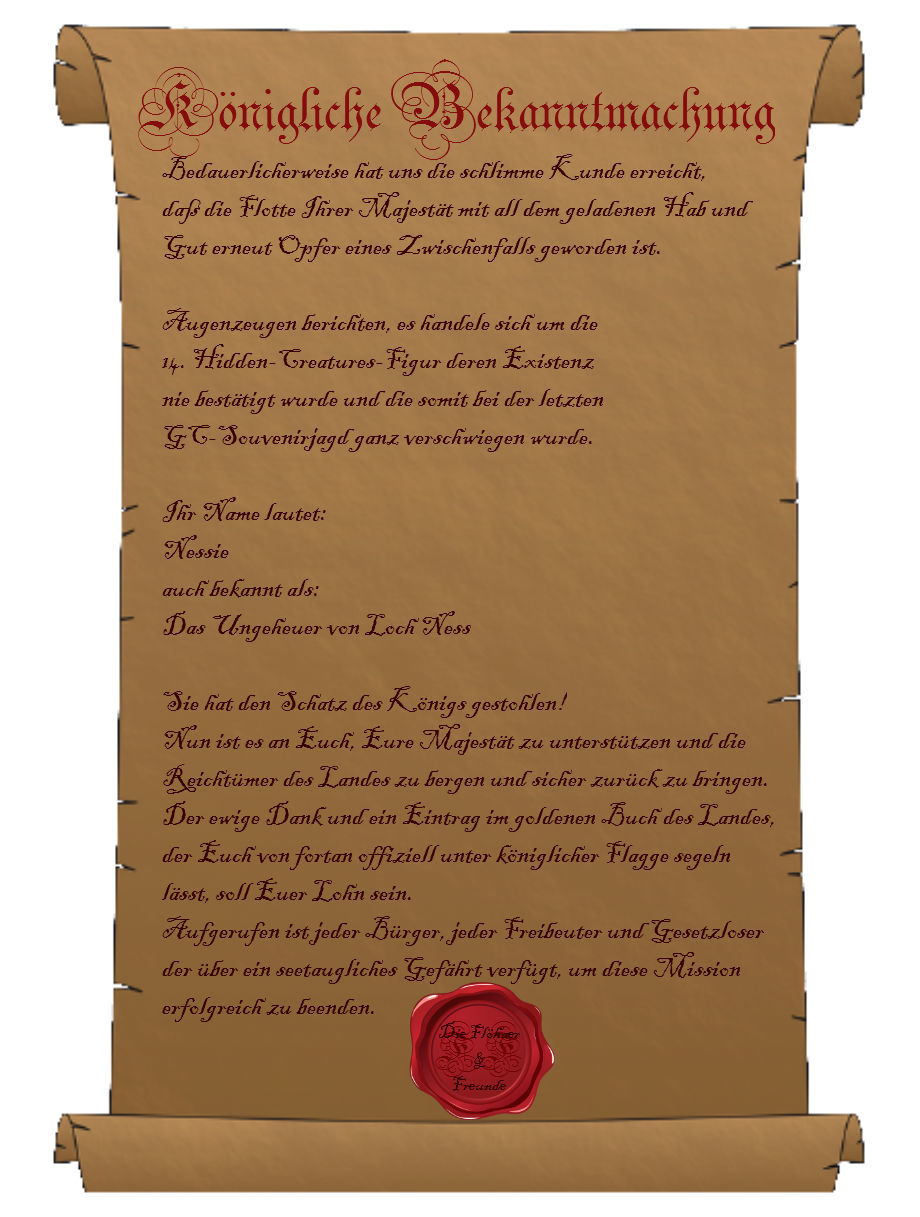 Königliche Bekanntmachung
Bedauerlicherweise hat uns die schlimme Kunde erreicht,
daß die Flotte Ihrer Majestät mit all dem geladenen Hab und
Gut erneut Opfer eines Zwischenfalls geworden ist.
Augenzeugen berichten, es handele sich um die
14. Hidden-Creatures-Figur deren Existenz
nie bestätigt wurde und die somit bei der letzten
GC-Souvenirjagd ganz verschwiegen wurde.
Ihr Name lautet:
Nessie
auch bekannt als:
Das Ungeheuer von Loch Ness
Sie hat den Schatz des Königs gestohlen!
Nun ist es an Euch, Eure Majestät zu unterstützen und die
Reichtümer des Landes zu bergen und sicher zurück zu bringen.
Der ewige Dank und ein Eintrag im goldenen Buch des Landes,
der Euch von fortan offiziell unter königlicher Flagge segeln
lässt, soll Euer Lohn sein.
Aufgerufen ist jeder Bürger, jeder Freibeuter und Gesetzloser
der über ein seetaugliches Gefährt verfügt, um diese Mission
erfolgreich zu beenden.
Die
&
Freunde